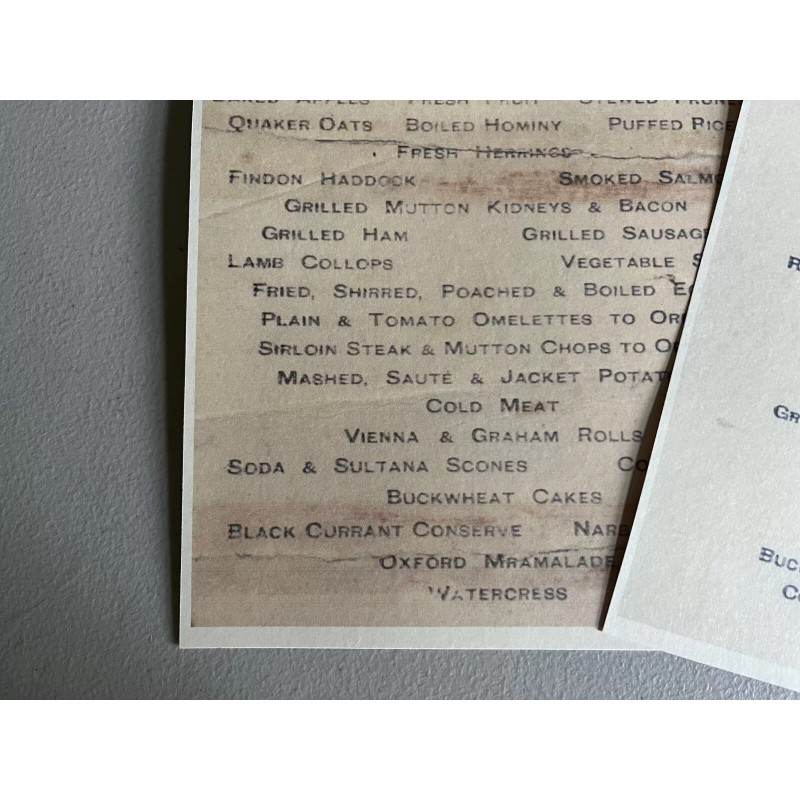 BAKED APPLES FRESH FRUIT STEWED PRUNE
QUAKER OATS BOILED HOMINY PUFFED RICE
FRESH HERRINGS
FINDON HADDOCK SMOKED SALMO
GRILLED MUTTON KIDNEYS & BACON
GRILLED HAM GRILLED SAUSAG
LAMB COLLOPS VEGETABLE S
FRIED, SHIRRED, POACHED & BOILED E
PLAIN & TOMATO OMELETTES TO OR
SIRLOIN STEAK & MUTTON CHOPS TO O
MASHED, SAUTÉ & JACKET POTAT
COLD MEAT
VIENNA & GRAHAM ROLLS
SODA & SULTANA SCONES CO
BUCKWHEAT CAKES
BLACK CURRANT CONSERVE NARB
OXFORD MRAMALADE
WATERCRESS
R
GR
BUC
CO